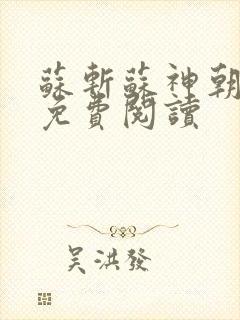 蘇斬蘇神朝
免費閱讀
吴洪發